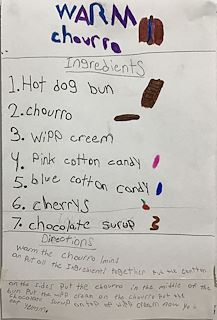 WARM
chourro
Ingredients
1. Hot dog bun
2. chourro
3. wipp creem
4. Pink cotton candy
5. blue cotton candy
6. cherrys
7. chocolate surup
Directions
warm the chourro
an Put all the Ingredients together Put the cotton
on the sides Put the chourro in the middle of the
bun Put the wipp cream on the chourro Put the
chocolate surup on top of wipp cream now